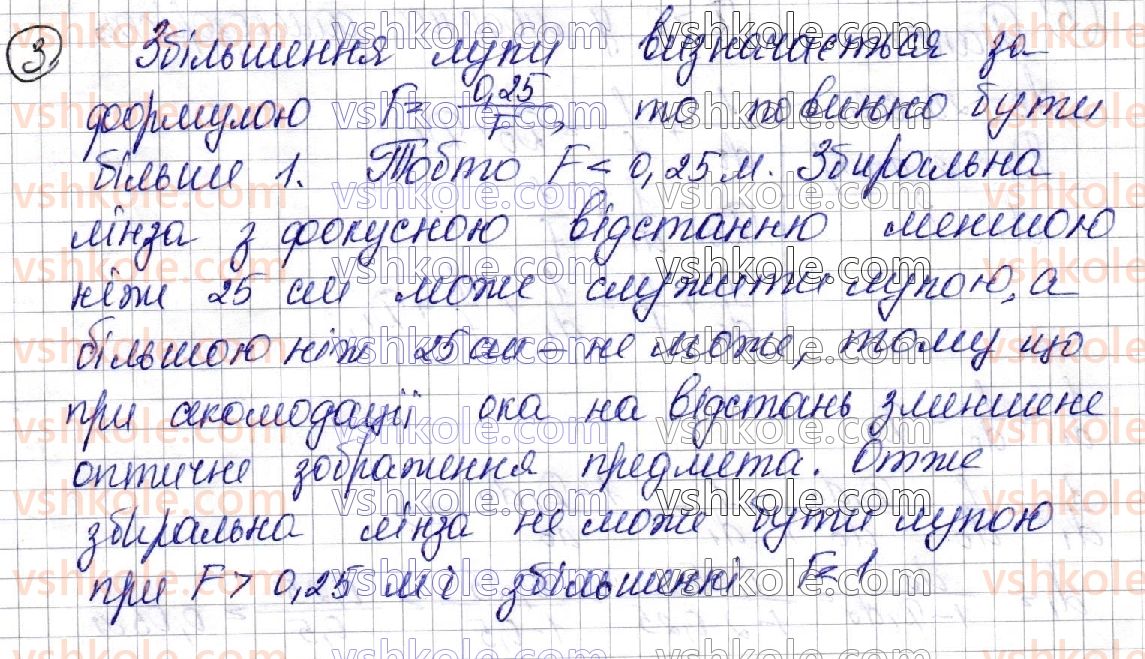 3. Збільшення лупи визначається за
формулою Г = 0,25/F, то повинно бути
більше 1. Тобто F < 0,25 м. Збиральна
лінза з фокусною відстанню меншою
ніж 25 см може служити лупою, а
більшою ніж 25 см – не може, тому що
при акомодації ока на відстань зменшене
оптичне зображення предмета. Отже
збиральна лінза не може бути лупою
при F > 0,25 м і збільшенні Г < 1
vshkole.com